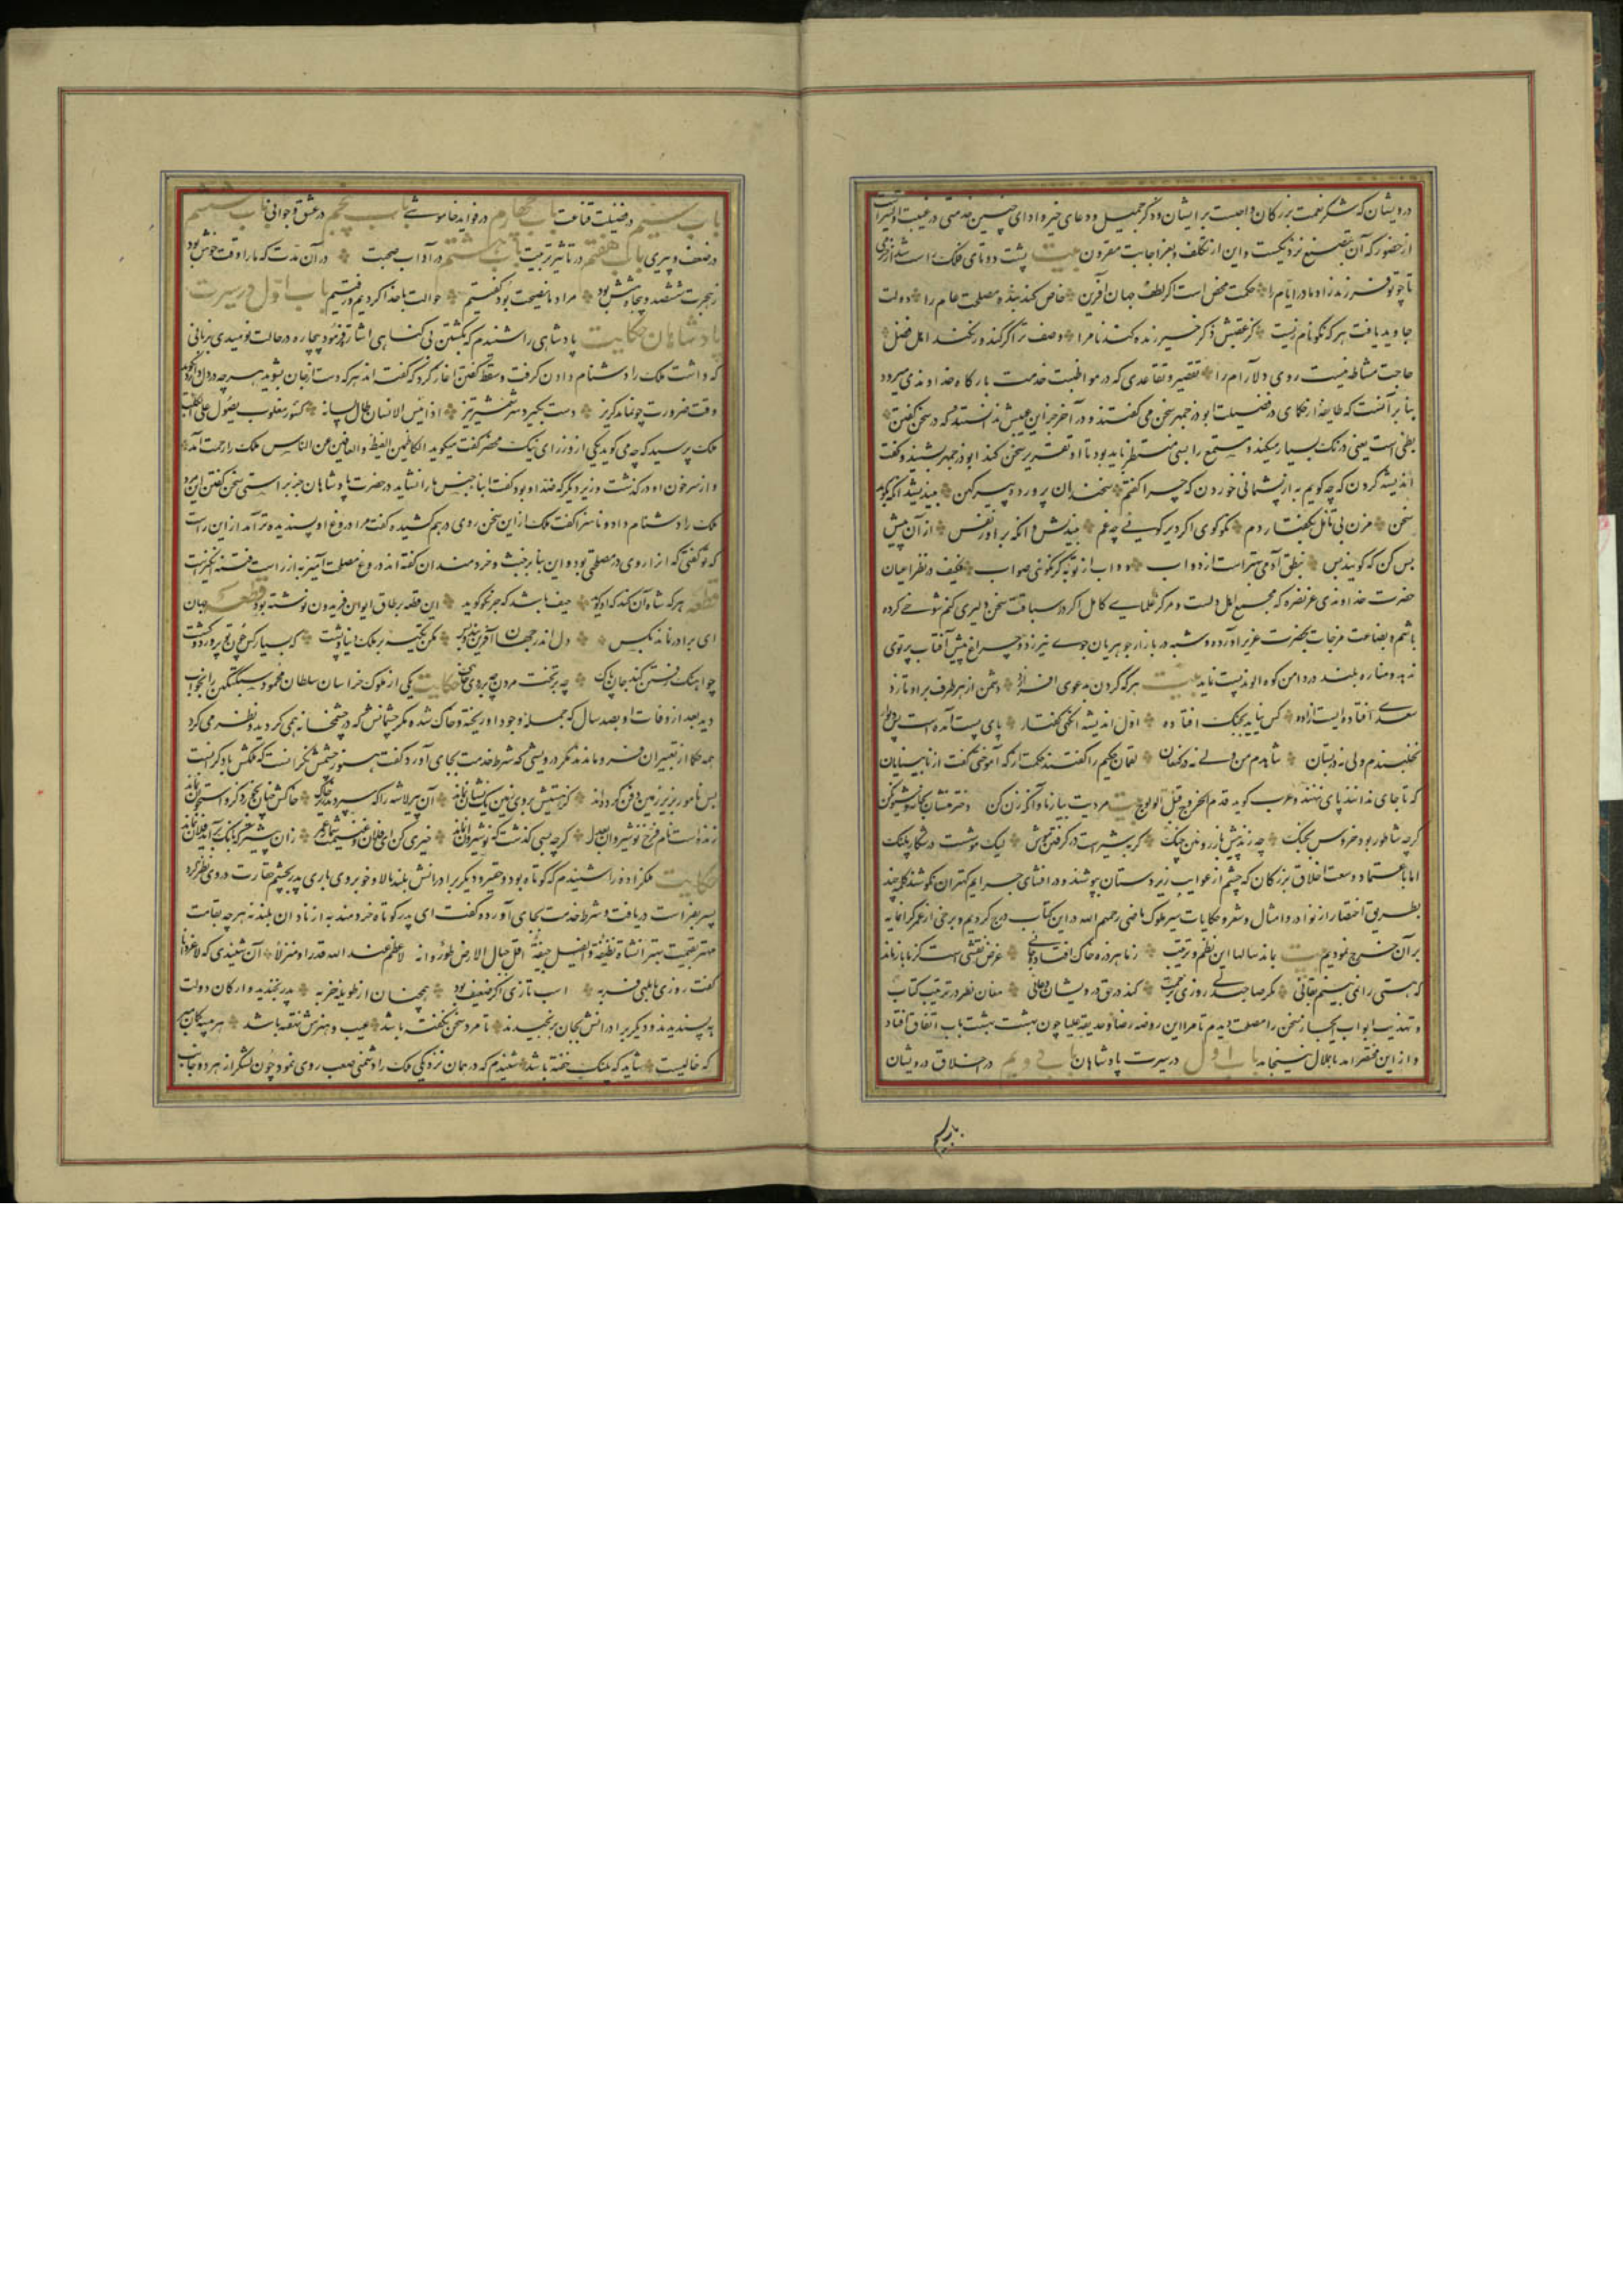 درویشان که شکر نعمت بزرگان واجبست بر ایشان و ذکر جمیل و دعای خیر و ادای چنین خدمتی در غیبت اولیتر است
از حضور که آن بتصنع نزدیکست و این از تکلف دور باجابت مقرون بیت پشت دوتای فلک راست شد از خرمی
تا چو تو فرزند زاد مادر ایام را حکمت محض است اگر لطف جهان آفرین خاص کند بنده مصلحت عام را دولت
جاوید یافت هر که نکونام زیست کز عقبش ذکر خیر زنده کند نام را وصف ترا گر کنند ور نکنند اهل فضل
حاجت مشاطه نیست روی دلارام را تقصیر و تقاعدی که در مواظبت خدمت بارگاه خداوندی میرود
بنا بر آنست که طایفه از حکمای در فضیلت ابوذرجمهر سخن می گفتند و در آخر جز این عیبش ندانستند که در سخن گفتن
بطی است یعنی درنگ بسیار میکند و مستمع را بسی منتظر باید بود تا او تقریر سخن کند ابوذرجمهر بشنید و گفت
اندیشه کردن که چه گویم به از پشمانی خوردن که چرا گفتم سخندان پرورده پیر کهن بیندیشد آنکه بگوید
سخن مزن بی تامل بگفتار دم نکو گوی اگر دیر گویی چه غم بیندیش و آنگه بر آور نفس از آن پیش
بس کن که گویند بس بنطق آدمی بهتر است از دواب دواب از تو به گر نگویی صواب فکیف در نظر اعیان
حضرت خداوندی عز نصره که مجمع اهل دلست و مرکز علمای کامل اگر در سیاقت سخن دلیری کنم شوخی کرده
باشم و بضاعت مزجات بحضرت عزیز آورده و شبه در بازار جوهریان جوی نیرزد و چراغ پیش آفتاب پرتوی
ندهد و مناره بلند در دامن کوه الوند پست نماید بیت هر که گردن بدعوی افرازد دشمن از هر طرف بر او تازد
سعدی افتاده ایست آزاده کس نیاید بجنگ افتاده اول اندیشه انگهی گفتار پای پست آمده است پس دیوار
نخلبندم ولی نه در بستان شاهدم من ولی نه در کنعان لقمان حکیم را گفتند حکمت از که آموختی گفت از نابینایان
که تا جای ندانند پای ننهند و عرب گوید قدم الخروج قبل الولوج بیت مردیت بیازما و آنگه زن کن
گرچه شاطر بود خروس بجنگ چه زند پیش باز روئین چنگ گربه شیر است در گرفتن موش لیک موشست در مصاف پلنگ
اما باعتماد وسعت اخلاق بزرگان که چشم از عوایب زیردستان بپوشند و در افشای جرایم کهتران نکوشند کلمه چند
بطریق اختصار از نوادر و امثال و شعر و حکایات سیر ملوک ماضی رحمهم الله در این کتاب درج کردیم و برخی از عمر گرانمایه
بر آن خرج نمودیم بیت بماند سالها این نظم و ترتیب ز ما هر ذره خاک افتاده جائی غرض نقشی است کز ما باز ماند
که هستی را نمی بینم بقائی مگر صاحبدلی روزی برحمت کند در حق درویشان دعائی معان نظر در ترتیب کتاب
و تهذیب ابواب ایجاز سخن را مصلحت دیدم تا مر این روضه رضا و حدیقه علیا چون بهشت بهشت باب اتفاق افتاد
و از این مختصر آمد باب اول در سیرت پادشاهان باب دویم در اخلاق درویشان
باب سیم در فضیلت قناعت باب چهارم در فواید خاموشی باب پنجم در عشق و جوانی باب ششم
در ضعف و پیری باب هفتم در تاثیر تربیت باب هشتم در آداب صحبت در آن مدت که ما را وقت خوش بود
ز هجرت ششصد و پنجاه و شش بود مراد ما نصیحت بود گفتیم حوالت با خدا کردیم و رفتیم باب اول در سیرت
پادشاهان حکایت پادشاهی را شنیدم که بکشتن بی گناهی اشارت فرمود بیچاره در حالت نومیدی بزبانی
که داشت ملک را دشنام دادن گرفت و سقط گفتن آغاز کرد که گفته اند هر که دست از جان بشوید هرچه در دل دارد بگوید
وقت ضرورت چو نماند گریز دست بگیرد سر شمشیر تیز اذا یئس الانسان طال لسانه کسنور مغلوب یصول علی الکلب
ملک پرسید که چه می گوید یکی از وزرای نیک محضر گفت میگوید الکاظمین الغیظ و العافین عن الناس ملک را رحمت آمد
و از سر خون او درگذشت وزیر دیگر که ضد او بود گفت ابنا جنس ما را نشاید در حضرت پادشاهان جز براستی سخن گفتن این مرد
ملک را دشنام داد و ناسزا گفت ملک از این سخن روی در هم کشیده گفت مرا دروغ او پسندیده تر آمد از این راست
که تو گفتی که آنرا روی در مصلحتی بود و این بنا بر خبث و خردمندان گفته اند دروغ مصلحت آمیز به از راست فتنه انگیز است
قطعه هر که شاه آن کند که او گوید حیف باشد که جز نکو گوید این قطعه بر طاق ایوان فریدون نوشته بود قطعه جهان
ای برادر نماند بکس دل اندر جهان آفرین بند و بس مکن تکیه بر ملک دنیا و پشت که بسیار کس چون تو پرورد و کشت
چو آهنگ رفتن کند جان پاک چه بر تخت مردن چه بر روی خاک حکایت یکی از ملوک خراسان سلطان محمود سبکتکین را بخواب
دید بعد از وفات او بصد سال که جمله وجود او ریخته و خاک شده مگر چشمانش که در چشمخانه همی گردید و نظر می کرد
همه حکما از تعبیر آن فرو ماندند مگر درویشی که شرط خدمت بجای آورد گفت هنوز چشمش نگرانست که ملکش با دگرانست
بس نامور بزیر زمین دفن کرده اند کز هستیش بروی زمین یک نشان نماند آن پیر لاشه را که سپردند زیر خاک خاکش چنان بخورد کزو استخوان نماند
زنده است نام فرخ نوشیروان بعدل گرچه بسی گذشت که نوشیروان نماند خیری کن ای فلان و غنیمت شمار عمر زان پیشتر که بانگ برآید فلان نماند
حکایت ملکزاده را شنیدم که کوتاه بود و حقیر و دیگر برادرانش بلند بالا و خوبروی باری پدر بچشم حقارت در وی نظر کرد
پسر بفراست دریافت و شرط خدمت بجای آورده گفت ای پدر کوتاه خردمند به از نادان بلند نه هرچه بقامت
مهتر بقیمت بهتر الشاة نظیفة و الفیل جیفة اقل جبال الارض طور و انه لاعظم عند الله قدرا و منزلا آن شنیدی که لاغر دانا
گفت روزی بابلهی فربه اسب تازی اگر ضعیف بود همچنان از طویله خر به پدر بخندید و ارکان دولت
بپسندیدند و دیگر برادرانش بجان برنجیدند تا مرد سخن نگفته باشد عیب و هنرش نهفته باشد هر بیشه گمان مبر
که خالیست شاید که پلنگ خفته باشد شنیدم که در همان نزدیکی ملک را دشمنی صعب روی نمود چون لشکر از هر دو جانب